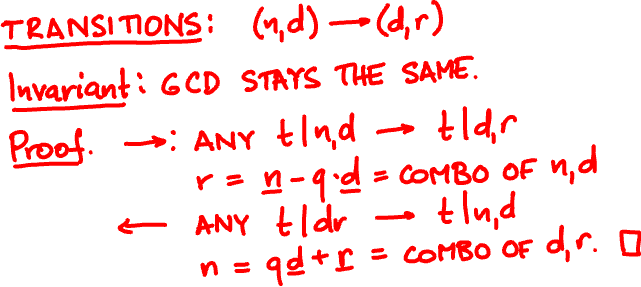 TRANSITIONS: (n,d) → (d,r)
Invariant: GCD STAYS THE SAME.
Proof. →: ANY t|n,d → t|d,r
r = n - q·d = COMBO OF n,d
← ANY t|dr → t|n,d
n = qd + r = COMBO OF d,r. □